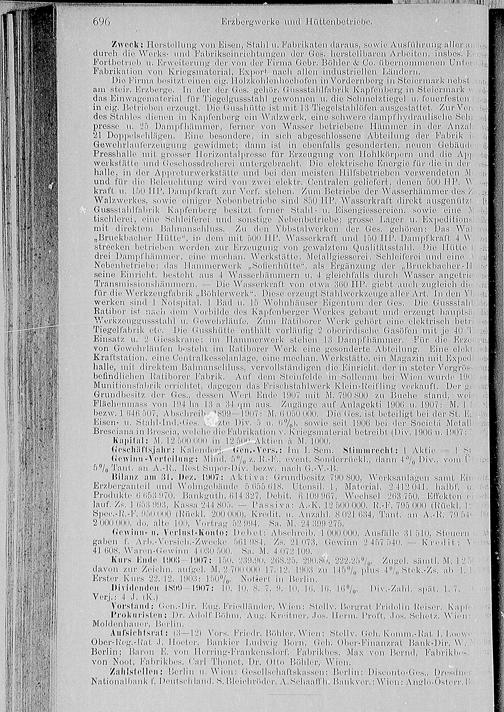 696 Erzbergwerke und Hüttenbetriebe.
Zweck: Herstellung von Eisen, Stahl u. Fabrikaten daraus, sowie Ausführung aller
durch die Werks- und Fabrikseinrichtungen der Ges. herstellbaren Arbeiten, insbes.
Fortbetrieb u. Erweiterung der von der Firma Gebr. Böhler & Co. übernommenen
Fabrikation von Kriegsmaterial, Export nach allen industriellen Ländern.
Die Firma besitzt einen eig. Holzkohlenhochofen in Vordernberg in Steiermark nebst
am steir. Erzberge. In der der Ges. gehör. Gussstahlfabrik Kapfenberg in Steiermark
das Einwagenmaterial für Tiegelgussstahl gewonnen u. die Schmelztiegel u. feuerfesten
in eig. Betrieben erzeugt. Die Gusshütte ist mit 13 Tiegelstahlöfen ausgestattet. Zur
des Stahles dienen in Kapfenberg ein Walzwerk, eine schwere dampfhydraulische
presse u. 25 Dampfhämmer, ferner von Wasser betriebene Hämmer in der Anzahl
21 Doppelschlägen. Eine besondere, in sich abgeschlossene Abteilung der Fabrik
Gewehrlauferzeugung gewidmet; dann ist in ebenfalls gesonderten, neuen
Presshalle mit grosser Horizontalpresse für Erzeugung von Hohlkörpern und die
werkstätte und Geschossdreherei untergebracht. Die elektrische Energie für die in der
halle, in der Appreturwerkstätte und bei den meisten Hilfsbetrieben verwendeten
und für die Beleuchtung wird von zwei elektr. Centralen geliefert, denen 500 HP.
kraft u. 150 HP. Dampfkraft zur Verf. stehen. Zum Betriebe der Wasserhämmer des
Walzwerkes, sowie einiger Nebenbetriebe sind 850 HP. Wasserkraft direkt
Gussstahlfabrik Kapfenberg besitzt ferner Stahl- u. Eisengiessereien, sowie eine
tischlerei, eine Schleiferei und sonstige Nebenbetriebe; grosse Lager u.
mit direktem Bahnanschluss. Zu den Ybbstalwerken der Ges. gehören: Das
„Bruckbacher Hütte", in dem mit 500 HP. Wasserkraft und 150 HP. Dampfkraft 4
strecken betrieben werden zur Erzeugung von gewalzten Qualitätsstahl. Die Hütte
drei Dampfhämmer, eine mechan. Werkstätte, Metallgiesserei, Schleiferei und eine
Nebenbetriebe; das Hammerwerk „Sofienhütte", als Ergänzung der „Bruckbacher
seine Einricht. besteht aus 4 Wasserhämmern u. 4 gleichfalls durch Wasser
Transmissionshämmern. — Die Wasserkraft von etwa 360 HP. giebt auch zugleich
für die Werkzeugfabrik „Böhlerwerk". Diese erzeugt Stahlwerkzeuge aller Art. In den
werken sind 1 Notspital, 1 Bad u. 15 Wohnhäuser Eigentum der Ges. Die
Ratibor ist nach dem Vorbilde des Kapfenberger Werkes gebaut und erzeugt
Werkzeuggussstahl u. Gewehrläufe. Zum Ratiborer Werk gehört eine elektrisch
Tiegelfabrik etc. Die Gusshütte enthält vorläufig 2 oberirdische Gasöfen mit je 40
Einsatz u. 2 Giesskrane; im Hammerwerk stehen 13 Dampfhämmer. Für die
von Gewehrläufen besteht im Ratiborer Werk eine gesonderte Abteilung. Eine
Kraftstation, eine Centralkesselanlage, eine mechan. Werkstätte, ein Magazin mit
halle, mit direktem Bahnanschluss, vervollständigen die Einricht. der in steter
befindlichen Ratiborer Fabrik. Auf dem Steinfelde in Sollenau bei Wien wurde
Munitionsfabrik errichtet, dagegen das Frischstahlwerk Klein-Reifling verkauft. Der
Grundbesitz der Ges., dessen Wert Ende 1907 mit M. 790 800 zu Buche stand,
Flächenmass von 194 ha 13 a 34 qm aus. Zugänge auf Anlagekti 1906 u. 1907: M.
bezw. 1 846 507, Abschreib. 1899—1907: M. 6 050 000. Die Ges. ist beteiligt bei der St.
Eisen- u. Stahl-Ind.-Ges. Div. 5 u. 6%, sowie seit 1906 bei der Società
Bresciana in Brescia, welche die Fabrikation v. Kriegsmaterial betreibt (Div. 1906 u. 1907:
Kapital: M. 12 500 000 in 12 500 Aktien à M. 1000.
Geschäftsjahr: Kalenderj. Gen.-Vers.: Im I. Sem. Stimmrecht: 1 Aktie = 1
Gewinn-Verteilung: Mind. 5% z. R.-F., event. Sonderrückl., dann 4% Div., vom
5% Tant. an A.-R., Rest Super-Div. bezw. nach G.-V.-B.
Bilanz am 31. Dez. 1907: Aktiva: Grundbesitz 790 800, Werksanlagen samt
Erzbergsanteil und Wohngebäude 5 055 618, Utensil. 1, Material. 2 412 041, halbf. u.
Produkte 6 653 970, Bankguth. 614 327, Debit. 6 109 967, Wechsel 263 750, Effekten
lauf. Zs. 1 653 993, Kassa 244 805. — Passiva: A.-K. 12 500 000, R.-F. 795 000
Spec.-R.-F. 950 000 (Rückl. 200 000), Kredit. u. Anzahl. 8 021 634, Tant. an A.-R.
2 000 000, do. alte 100, Vortrag 52 994. Sa. M. 24 399 275.
Gewinn- u. Verlust-Konto: Debet: Abschreib. 1 000 000, Ausfälle 31 510, Steuern
gaben f. Arb.-Versich.-Zwecke 561 984, Zs. 21 073, Gewinn 2 457 540. — Kredit:
41 608, Waren-Gewinn 4 030 500. Sa. M. 4 072 109.
Kurs Ende 1903—1907: 150, 239.90, 268.25, 290.80, 222.25%. Zugel. sämtl. M.
davon zur Zeichn. aufgel. M. 2 700 000 17./12. 1903 zu 145% plus 4% Stck.-Zs. ab
Erster Kurs 22./12. 1903: 150%. Notiert in Berlin.
Dividenden 1899—1907: 10, 10, 8, 7, 9, 10, 16, 16, 16%. Div.-Zahl. spät. 1./7.
Verj.: 4 J. (K.)
Vorstand: Gen.-Dir. Eug. Friedländer, Wien; Stellv. Bergrat Fridolin Reiser,
Prokuristen: Dr. Adolf Böhm, Aug. Kreitner, Jos. Herm. Proft, Jos. Schetz, Wien;
Moldenhauer, Berlin.
Aufsichtsrat: Vors. Friedr. Böhler, Wien; Stellv. Geh. Komm.-Rat I. Loewe,
Ober-Reg.-Rat J. Hoeter, Bankier Ludwig Born, Geh. Ober-Finanzrat Bank-Dir.
Berlin; Baron E. von Herring-Frankensdorf, Fabrikbes. Max von Bernd, Fabrikbes.
von Noot, Fabrikbes. Carl Thonet, Dr. Otto Böhler, Wien.
Zahlstellen: Berlin u. Wien: Gesellschaftskassen; Berlin: Disconto-Ges., Dresdner
Nationalbank f. Deutschland, S. Bleichröder, A. Schaaffh. Bankver.; Wien: Anglo-Österr.